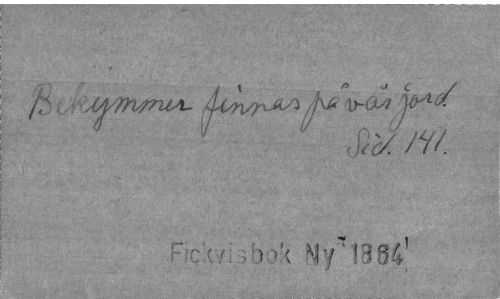 Bekymmer finnas på vår jord.
Sid. 141.
Fickvisbok Ny 1864